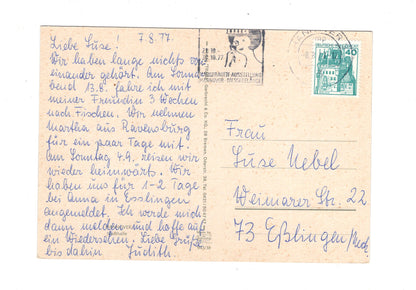 7.8.77
Liebe Suse!
Wir haben lange nichts von
einander gehört. Am Sonna
bend 13.8. fahre ich mit
meiner Freundin 3 Wochen
nach Fischen. Wir nehmen
Martha aus Ravensburg
für ein paar Tage mit.
Am Sonntag 4.9. reisen wir
wieder heimwärts. Wir
haben uns für 1-2 Tage
bei Anna in Esslingen
angemeldet. Ich werde mich
dann melden und hoffe auf
ein Wiedersehen. Liebe Grüße
bis dahin Judith.
40
Frau
Suse Nebel
Weimarer Str. 22
73 Eßlingen/Neck